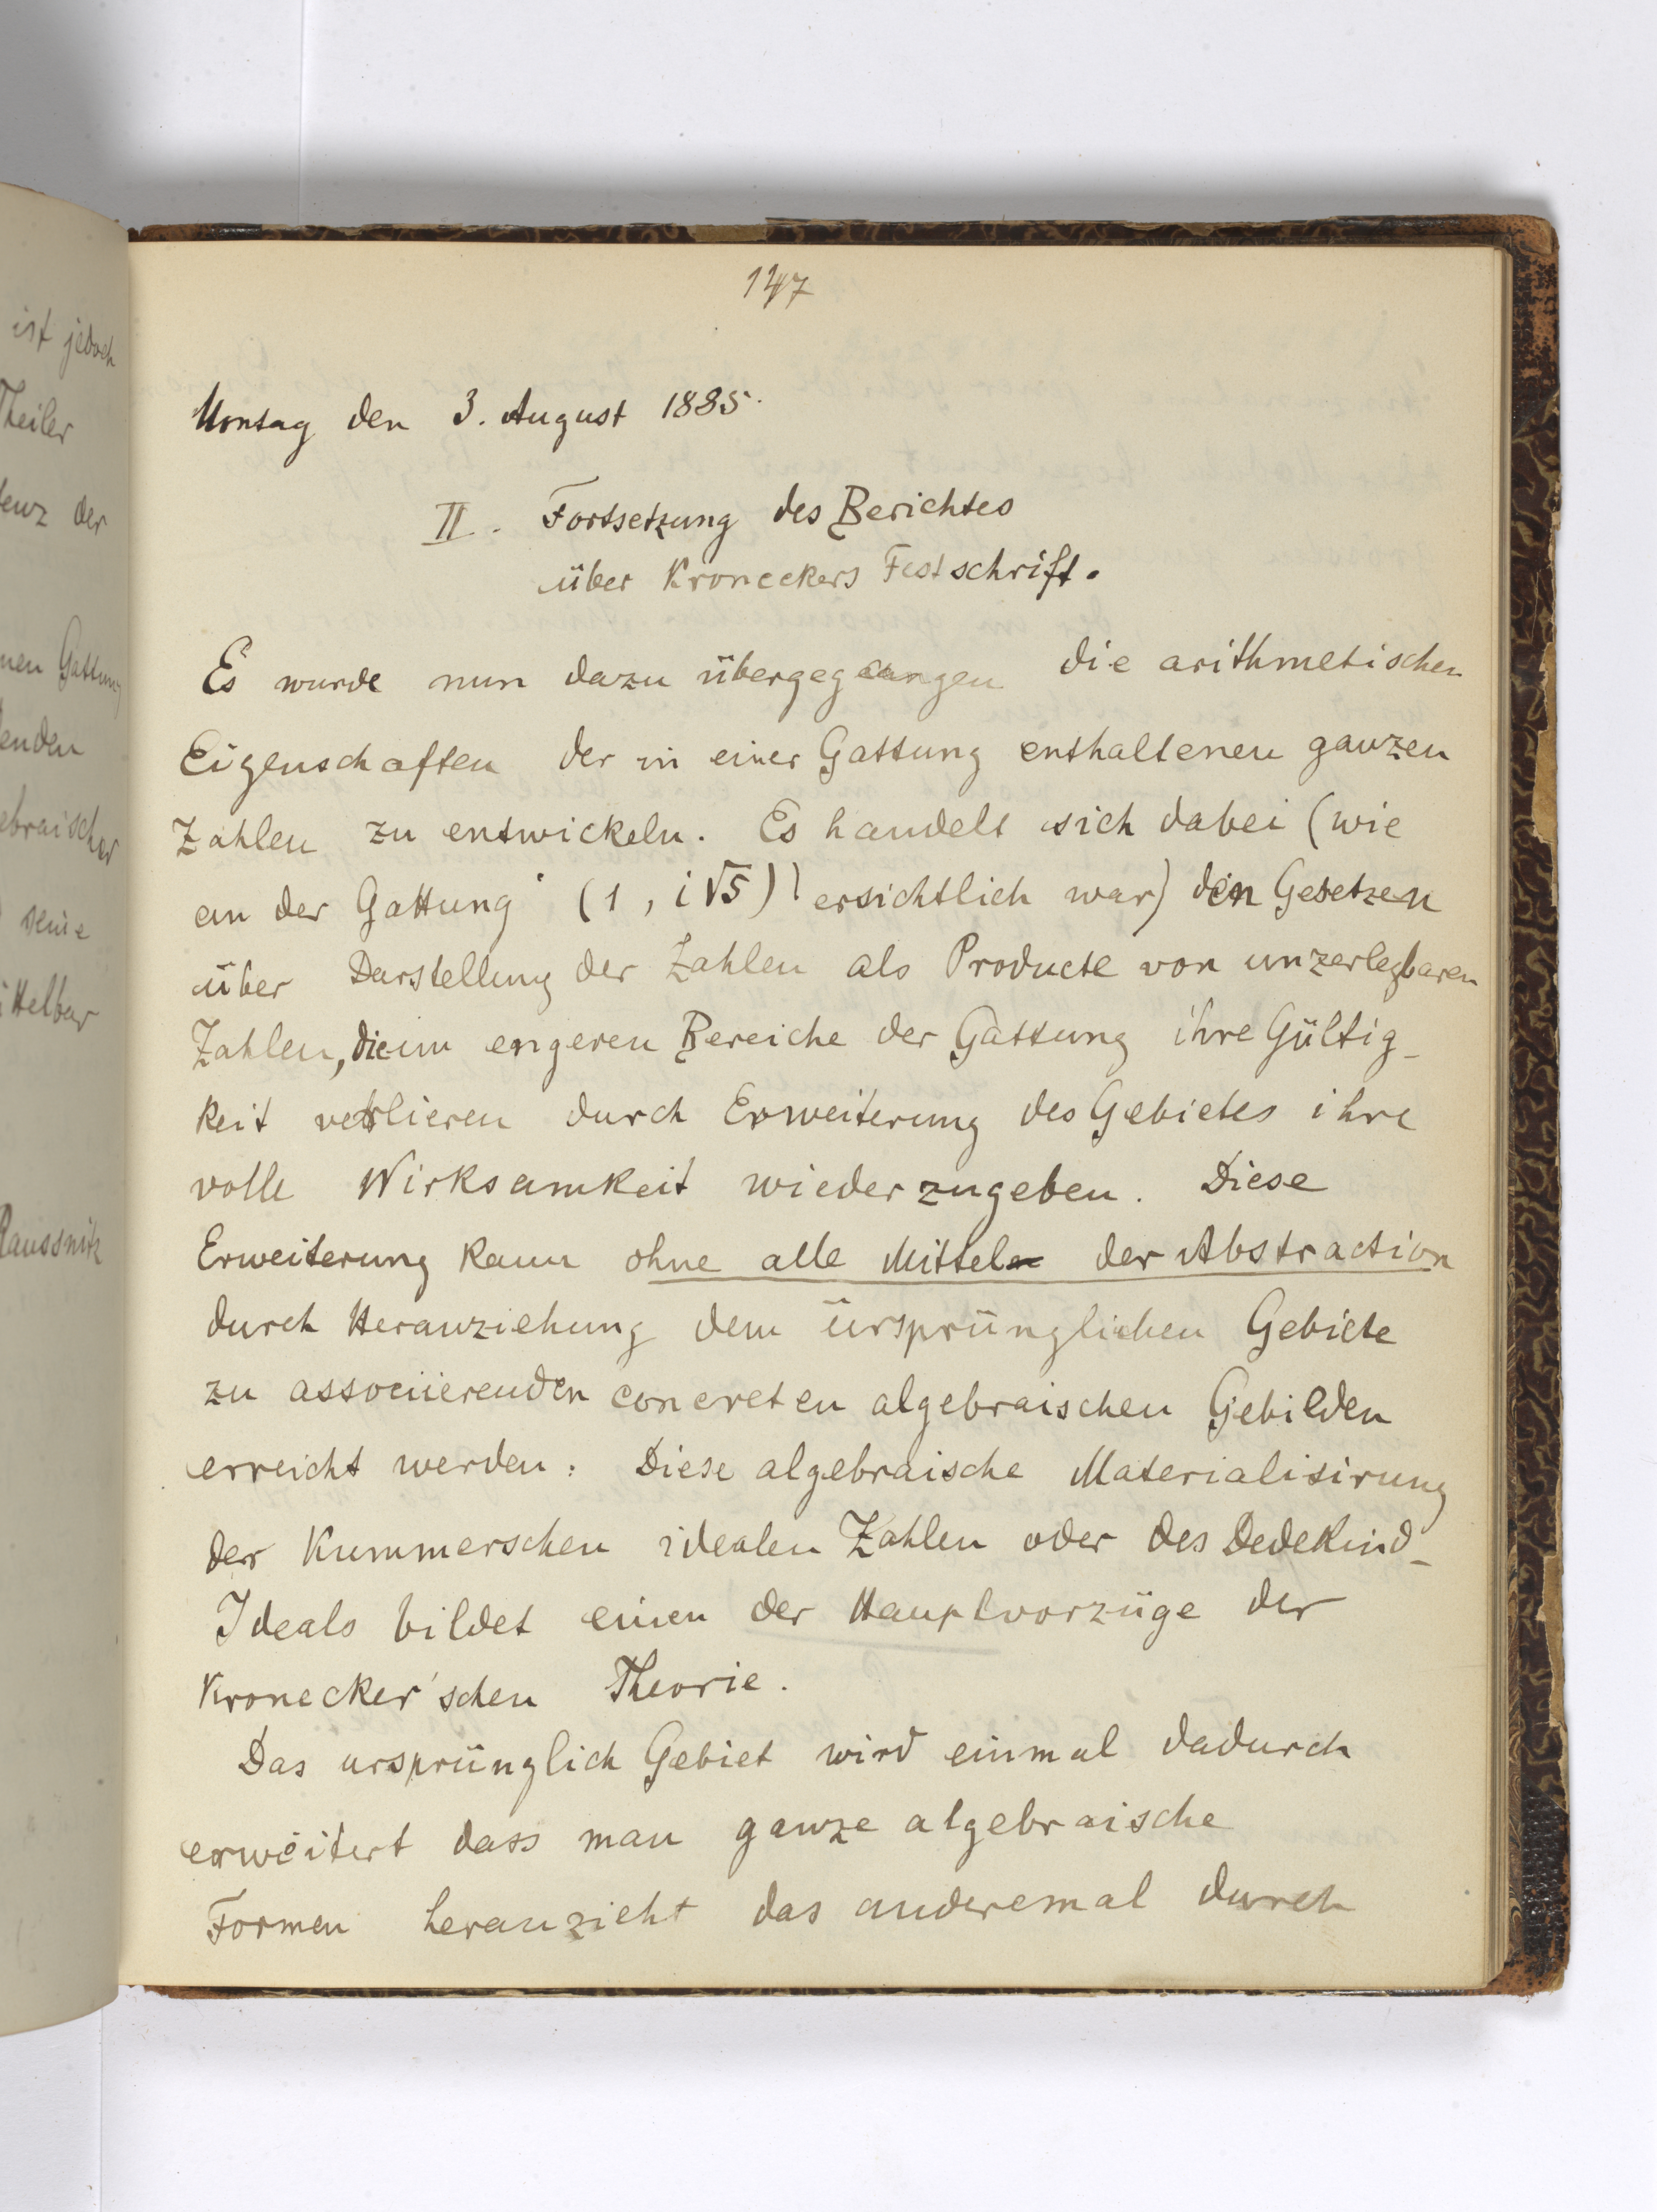 ist jedoch
Theiler
tenz der
nen Gattung
enden
ebraischer
seine
ittelbar
Raussnitz
147
Montag den 3. August 1885.
II. Fortsetzung des Berichtes
über Kroneckers Festschrift.
Es wurde nun dazu übergegangen die arithmetischen
Eigenschaften der in einer Gattung enthaltenen ganzen
Zahlen zu entwickeln. Es handelt sich dabei (wie
an der Gattung (1, i√5) ersichtlich war) den Gesetzen
über Darstellung der Zahlen als Producte von unzerlegbaren
Zahlen, die im engeren Bereiche der Gattung ihre Gültig-
keit verlieren durch Erweiterung des Gebietes ihre
volle Wirksamkeit wiederzugeben. Diese
Erweiterung kann ohne alle Mittel der Abstraction
durch Heranziehung dem ursprünglichen Gebiete
zu associierenden concreten algebraischen Gebilden
erreicht werden: Diese algebraische Materialisirung
der Kummerschen idealen Zahlen oder des Dedekind-
Ideals bildet einen der Hauptvorzüge der
Kronecker'schen Theorie.
Das ursprünglich Gebiet wird einmal dadurch
erweitert dass man ganze algebraische
Formen heranzieht das anderemal durch